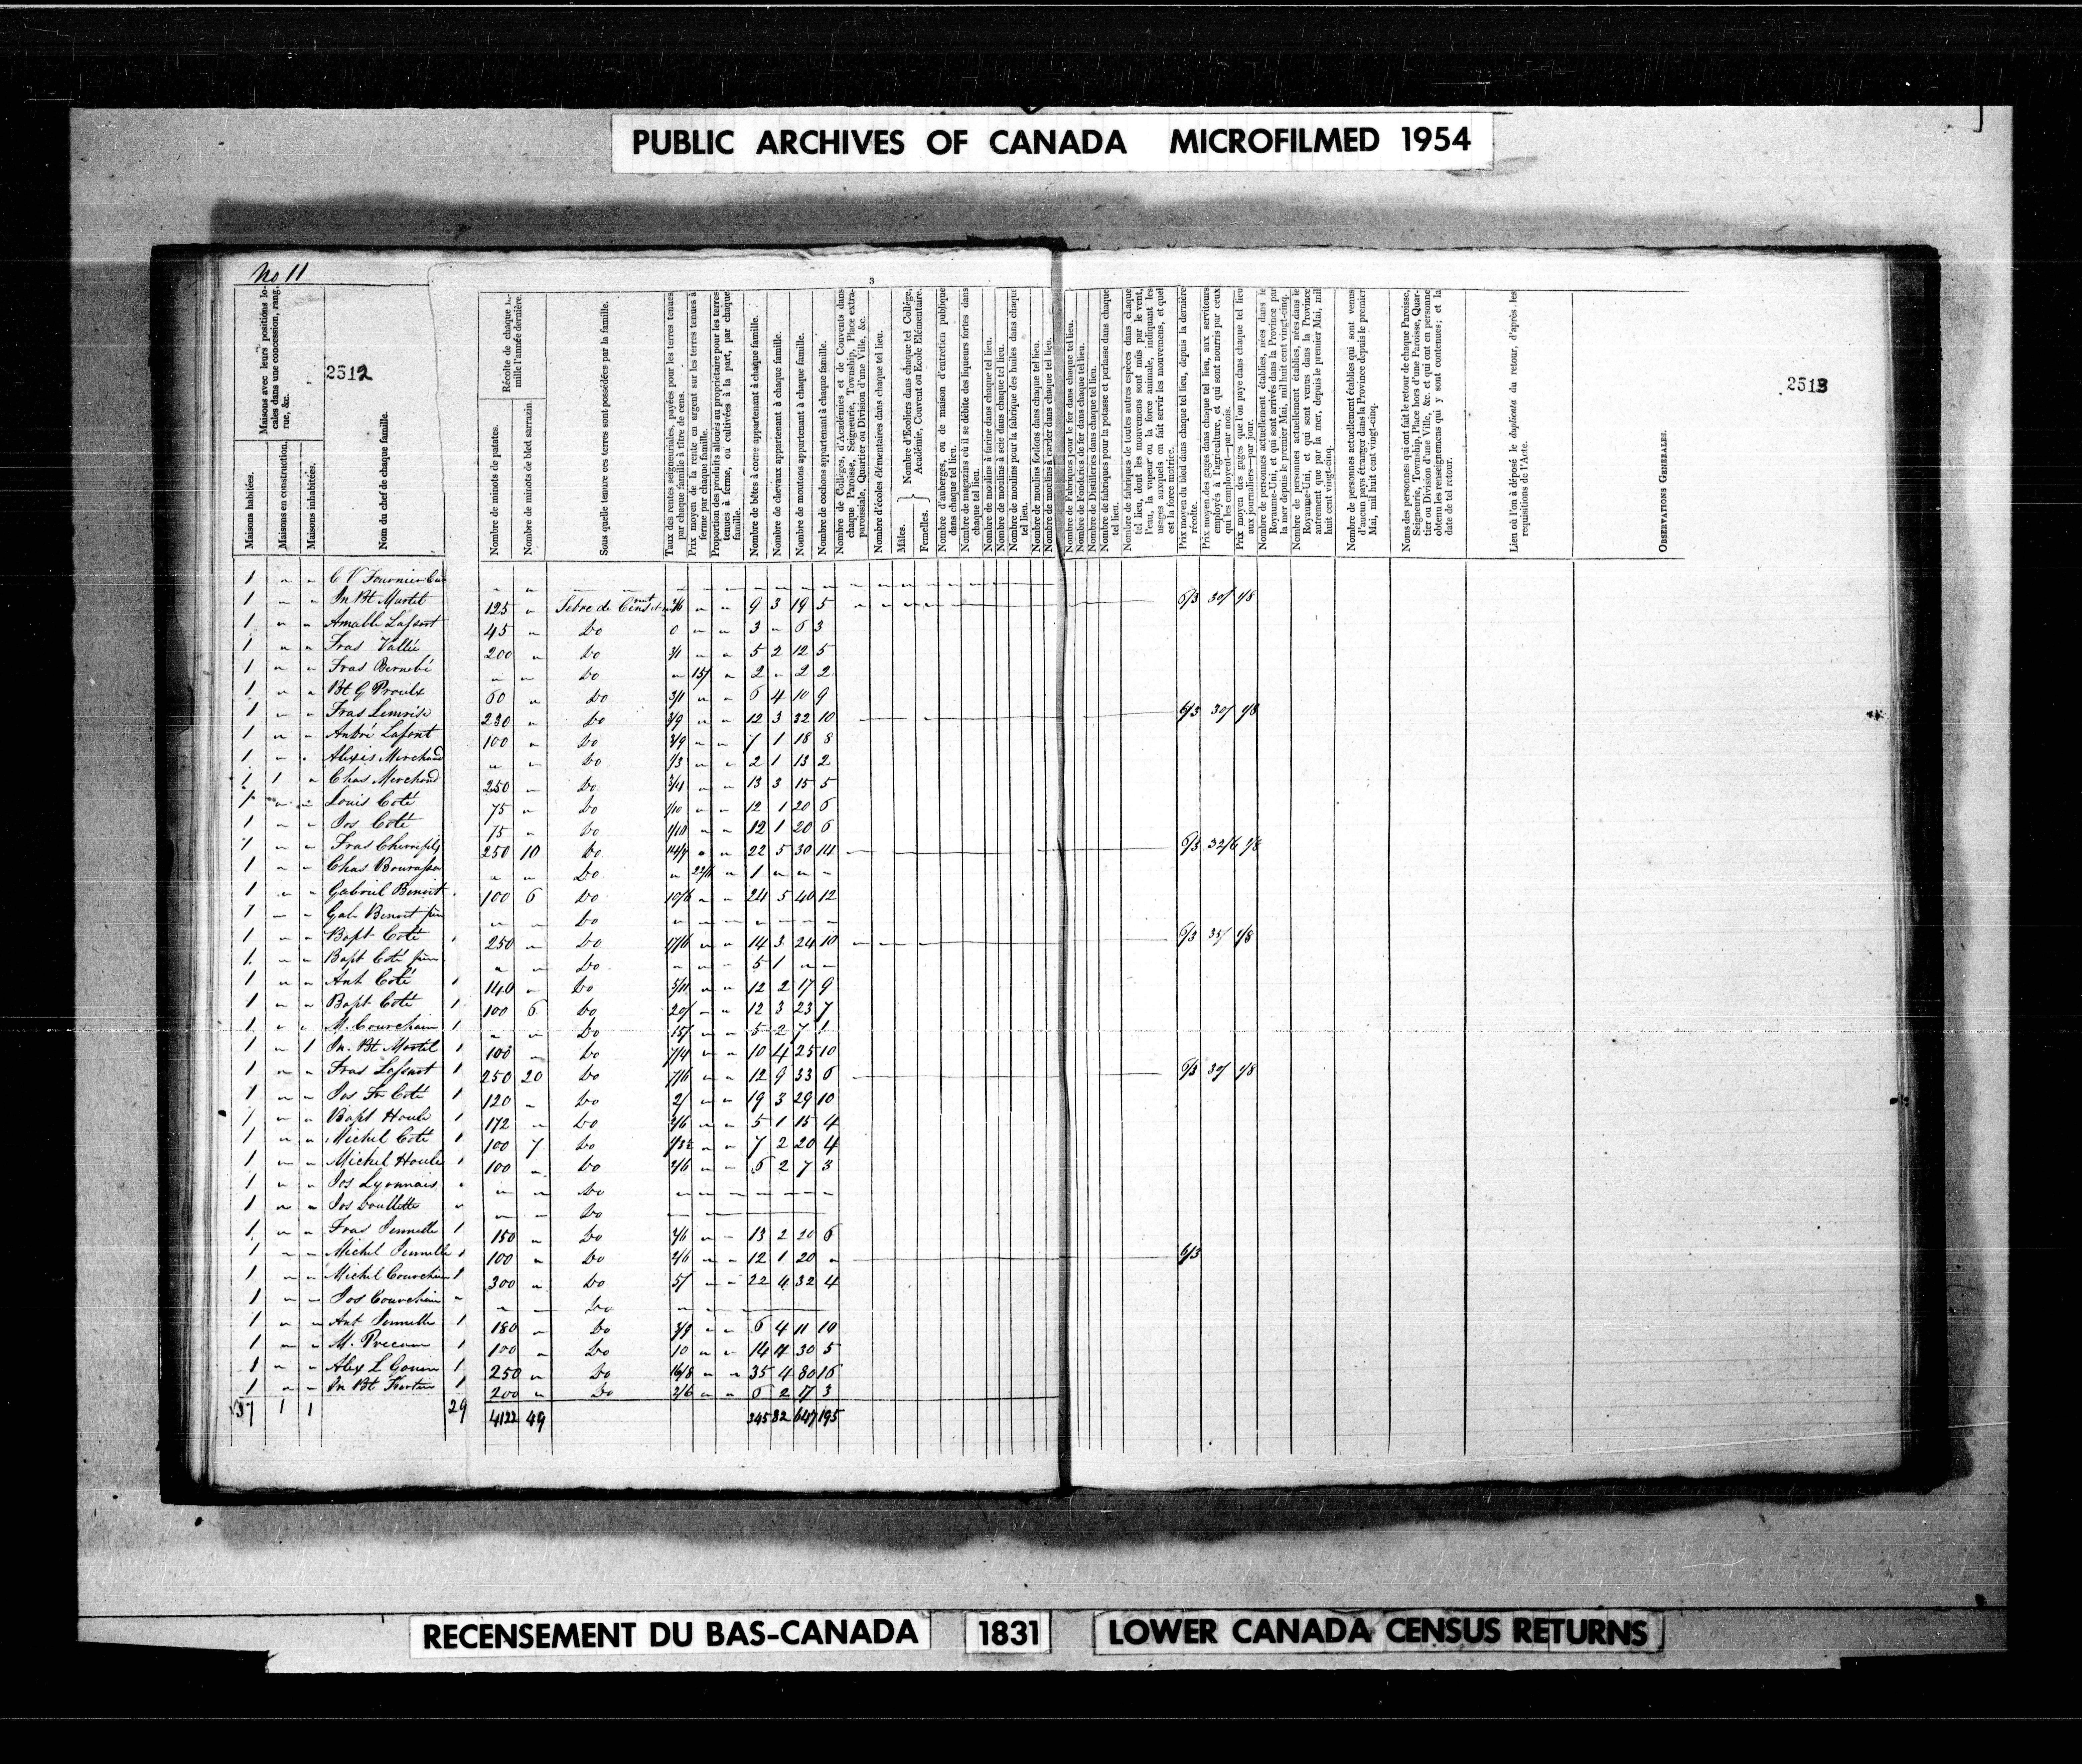 PUBLIC ARCHIVES OF CANADA MICROFILMED 1954
No 11
3
2512
2513
Maisons avec leurs positions locales dans une concession, rang, rue, &c.
Maisons habitées.
Maisons en construction.
Maisons inhabitées.
Nom du chef de chaque famille.
Récolte de chaque famille l'année dernière.
Nombre de minots de patates.
Nombre de minots de bled sarrazin.
Sous quelle tenure ces terres sont possédées par la famille.
Taux des rentes seigneuriales, payées pour les terres tenues par chaque famille à titre de cens.
Prix moyen de la rente en argent sur les terres tenues à ferme par chaque famille.
Proportion des produits alloués au propriétaire pour les terres tenues à ferme, ou cultivées à la part, par chaque famille.
Nombre de bêtes à corne appartenant à chaque famille.
Nombre de chevaux appartenant à chaque famille.
Nombre de moutons appartenant à chaque famille.
Nombre de cochons appartenant à chaque famille.
Nombre de Colléges, d'Académies et de Couvents dans chaque Paroisse, Seigneurie, Township, Place extra-paroissiale, Quartier ou Division d'une Ville, &c.
Nombre d'écoles élémentaires dans chaque tel lieu.
Nombre d'Ecoliers dans chaque tel Collége, Académie, Couvent ou Ecole Elémentaire.
Mâles.
Femelles.
Nombre d'auberges, ou de maison d'entretien publique dans chaque tel lieu.
Nombre de magasins où il se débite des liqueurs fortes dans chaque tel lieu.
Nombre de moulins à farine dans chaque tel lieu.
Nombre de moulins à scie dans chaque tel lieu.
Nombre de moulins pour la fabrique des huiles dans chaque tel lieu.
Nombre de moulins foulons dans chaque tel lieu.
Nombre de moulins à carder dans chaque tel lieu.
Nombre de Fabriques pour le fer dans chaque tel lieu.
Nombre de Fonderies de fer dans chaque tel lieu.
Nombre de Distilleries dans chaque tel lieu.
Nombre de fabriques pour la potasse et perlasse dans chaque tel lieu.
Nombre de fabriques de toutes autres espèces dans chaque tel lieu, dont les mouvemens sont mûs par le vent, l'eau, la vapeur ou la force animale, indiquant les usages auxquels on fait servir les mouvemens, et quel est la force motrice.
Prix moyen du bled dans chaque tel lieu, depuis la dernière récolte.
Prix moyen des gages dans chaque tel lieu, aux serviteurs employés à l'agriculture, et qui sont nourris par ceux qui les employent—par mois.
Prix moyen des gages que l'on paye dans chaque tel lieu aux journaliers—par jour.
Nombre de personnes actuellement établies, nées dans le Royaume-Uni, et qui sont arrivés dans la Province par la mer depuis le premier Mai, mil huit cent vingt-cinq.
Nombre de personnes actuellement établies, nées dans le Royaume-Uni, et qui sont venus dans la Province autrement que par la mer, depuis le premier Mai, mil huit cent vingt-cinq.
Nombre de personnes actuellement établies qui sont venus d'aucun pays étranger dans la Province depuis le premier Mai, mil huit cent vingt-cinq.
Noms des personnes qui ont fait le retour de chaque Paroisse, Seigneurie, Township, Place hors d'une Paroisse, Quartier ou Division d'une Ville, &c. et qui ont en personne obtenu les renseignemens qui y sont contenues; et la date de tel retour.
Lieu où l'on à déposé le duplicata du retour, d'après les requisitions de l'Acte.
OBSERVATIONS GENERALES.
1 " " C V Fournier
1 " " Jn Bt Martel 125 " " " 9 3 19 5 6/3 30/ 1/8
1 " " Amable 45 " Do 0 " " 3 " 6 3
1 " " Fras Vallée 200 " Do 3/1 " " 5 2 12 5
1 " " Fras Do " 15/ " 2 " 2 2
1 " " Bt G Proulx 60 " Do 3/11 " " 6 4 10 9
1 " " Fras 230 " Do 3/9 " " 12 3 32 10 6/3 30/ 1/8
1 " " André Lafont 100 " Do 3/9 " " 7 1 18 8
1 " " Alexis Merchand " " Do 1/3 " " 2 1 13 2
1 1 " Chas Merchand 250 " Do 3/4 " " 13 3 15 5
1 " " Louis Coté 75 " Do 1/10 " " 12 1 20 6
1 " " Jos Coté 75 " Do 1/10 " " 12 1 20 6
1 " " Fras 250 10 Do " " 22 5 30 14 6/3 32/6 1/8
1 " " Chas Bourassa " " Do " 22/6 " 1 " " "
1 " " Gabriel Benoit 100 6 Do 10/6 " " 24 5 40 12
1 " " Gab Benoit " " Do " " " " " " "
1 " " Bapt Coté 250 " Do 17/6 " " 14 3 24 10 6/3 35/ 1/8
1 " " Bapt Coté " " Do " " " 5 1 " "
1 " " Ant Coté 1 140 " Do 5/11 " " 12 2 17 9
1 " " Bapt Coté 1 100 6 Do 20/ " " 12 3 23 7
1 " " M. Courchain 1 " " Do 15/ " " 5 2 7 1
1 " 1 Jn. Bt Martel 1 100 " Do 7/4 " " 10 4 25 10
1 " " Fras 1 250 20 Do 7/6 " " 12 9 33 6 6/3 30/ 1/8
1 " " Jos Coté 1 120 " Do 2/ " " 19 3 29 10
1 " " Bapt Houle 1 172 " Do 2/6 " " 5 1 15 4
1 " " Michel Coté 1 100 7 Do " " 7 2 20 4
1 " " Michel Houle 1 100 " Do 2/6 " " 5 2 7 3
1 " " Jos Lyonnais " " " Do " " " " " " "
1 " " Jos " " " Do
1 " " Fras 1 150 " Do 2/6 " " 13 2 20 6
1 " " Michel 1 100 " Do 2/6 " " 12 1 20 " 6/3
1 " " Michel Courchain 1 300 " Do 5/ " " 22 4 32 4
1 " " Jos Courchain " " " Do
1 " " Ant 1 180 " Do " " 6 4 11 10
1 " " M. 1 100 " Do 10 " " 14 4 30 5
1 " " Alex L Gouin 1 250 " Do 16/8 " " 35 4 80 16
1 " " Jn Bt 1 200 " Do 2/6 " " 6 2 17 3
37 1 1 29 4122 49 345 82 647 195
RECENSEMENT DU BAS-CANADA 1831 LOWER CANADA CENSUS RETURNS